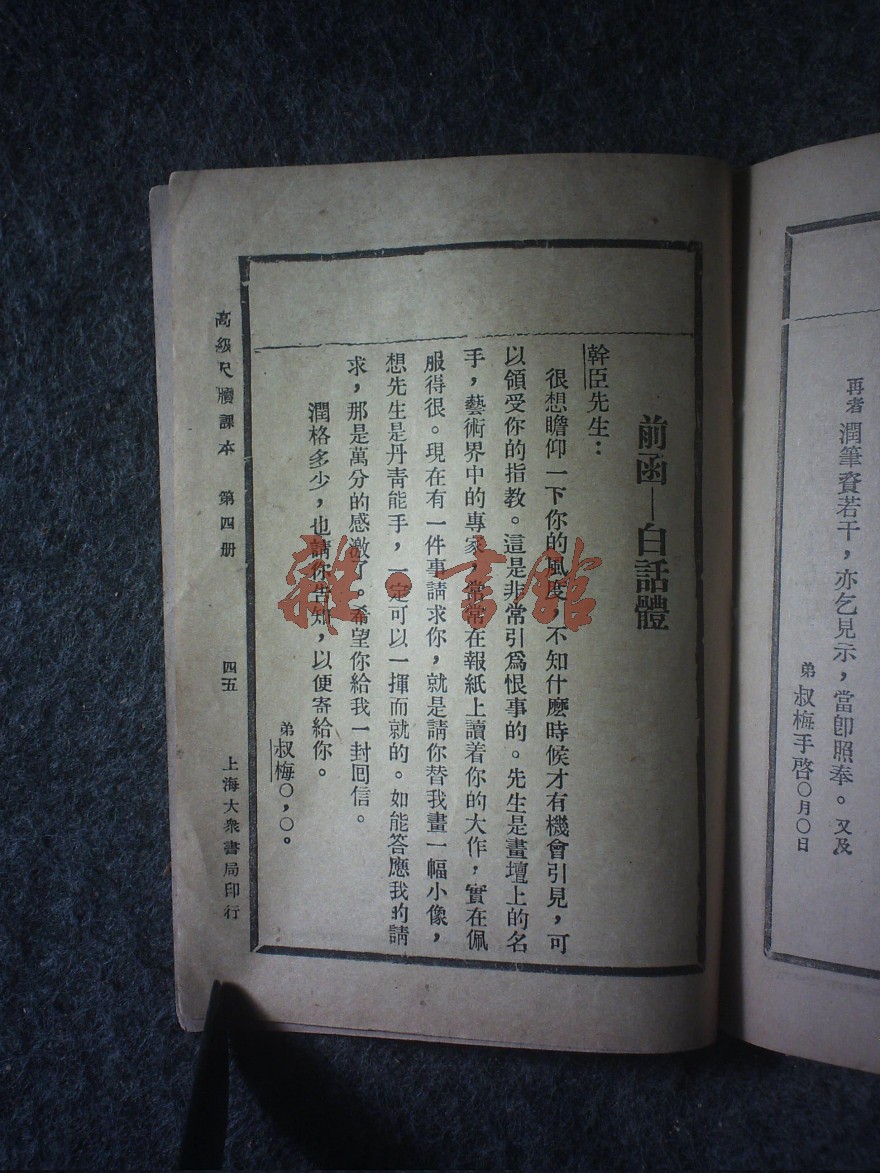 再者 潤筆資若干，亦乞見示，當卽照奉。又及
弟 叔梅手啓〇月〇日
前函—白話體
幹臣先生：
很想瞻仰一下你的風度，不知什麽時候才有機會引見，可
以領受你的指教。這是非常引爲恨事的。先生是畫壇上的名
手，藝術界中的專家，常常在報紙上讀着你的大作，實在佩
服得很。現在有一件事請求你，就是請你替我畫一幅小像，
想先生是丹靑能手，一定可以一揮而就的。如能答應我的請
求，那是萬分的感激了。希望你給我一封囘信。
潤格多少，也請你告知，以便寄給你。
弟 叔梅〇，〇。
高級尺牘課本 第四册 四五 上海大衆書局印行
雜·書館